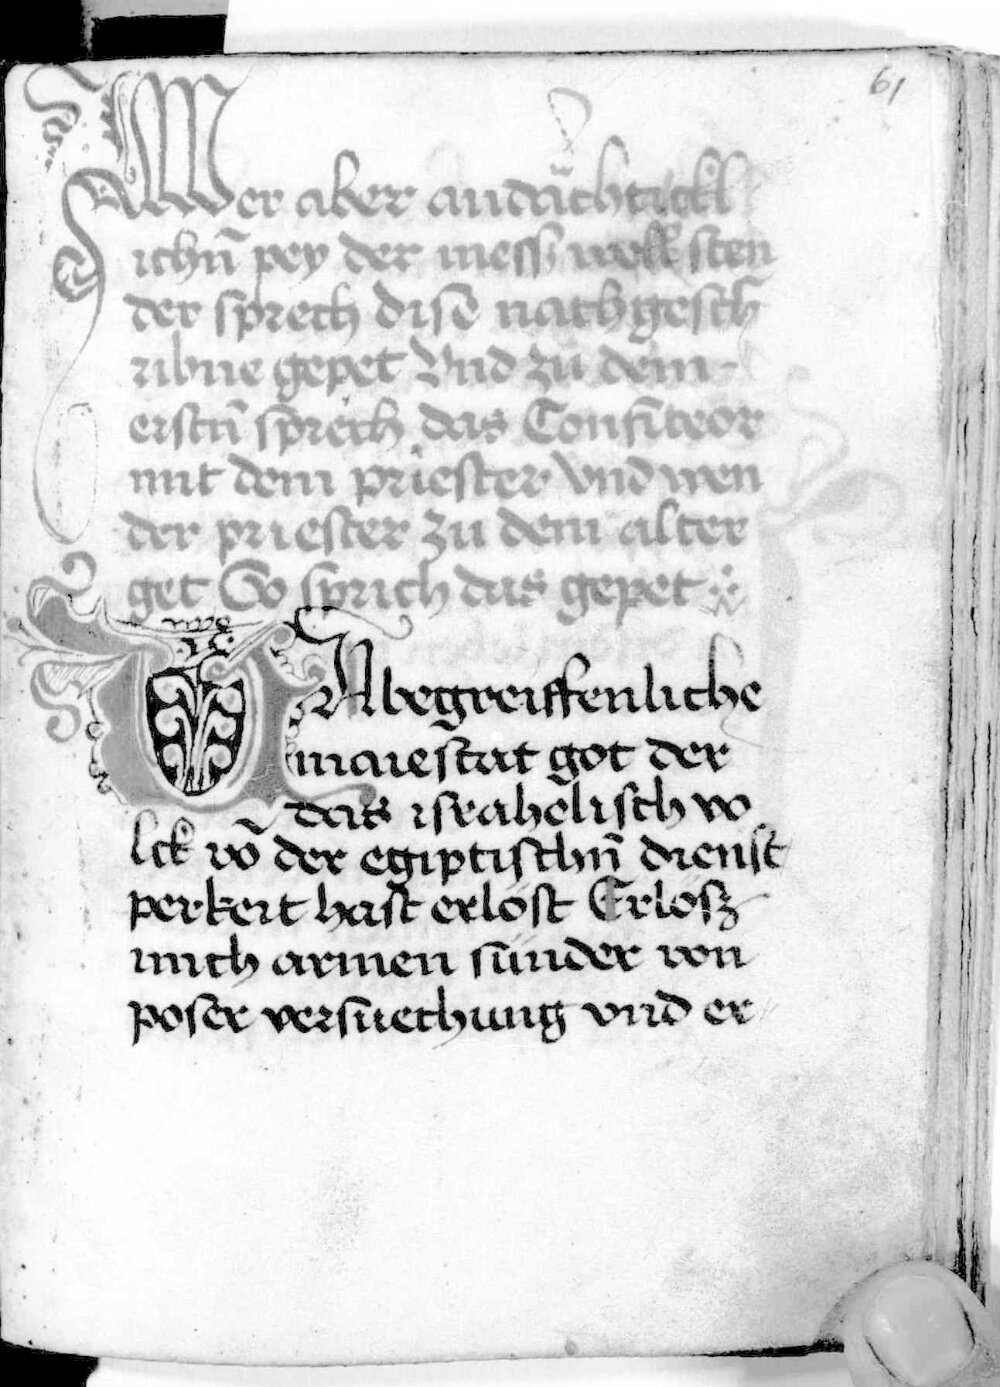 61
Wer aber andächtickl
ichn̄ pey der mess well sten
der sprech dise nachgesch
ribne gepet Vnd zu dem
erstn̄ sprech das Confiteor
mit dem priester vnd wen
der priester zu dem alter
get So sprich das gepet
VNbegreiffenliche
maiestat got der
das israhelisch vo
lck vō der egiptischn̄ dienst
perkeit hast erlöst Erlösz
mich armen sünder von
poser versüechung vnd er